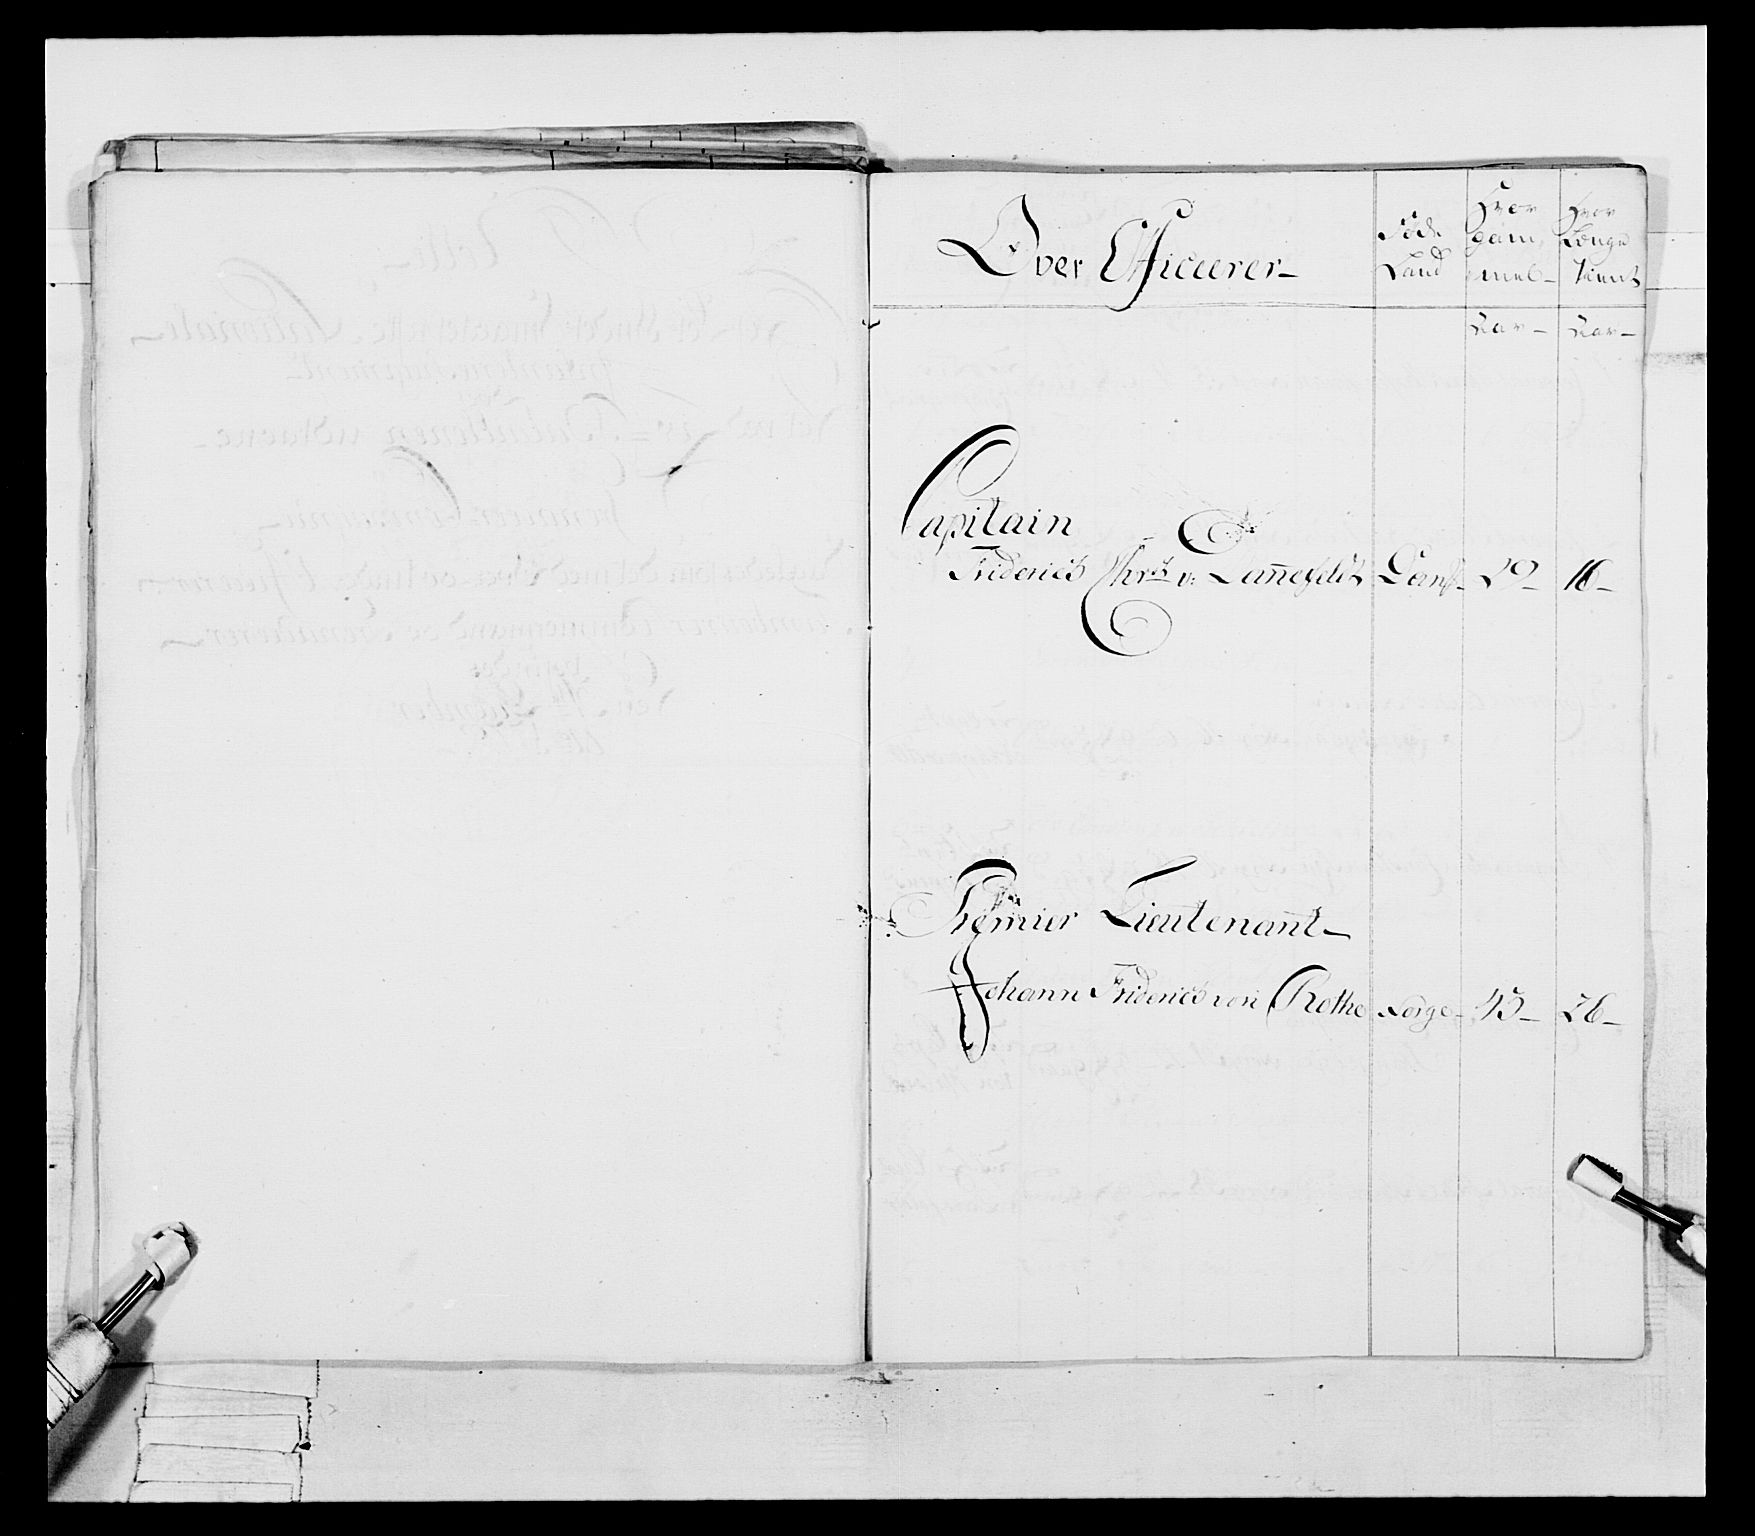 Over Officerer-
Føde Land
Hvor gammel-
Hvor Længe tient
Aar-
Aar-
Capitain
Friderich Chrs v: Lannefeldt Dansk- 29- 16-
Premier Lieutenant-
Johann Friderich von Rothe Norge- 45- 26-